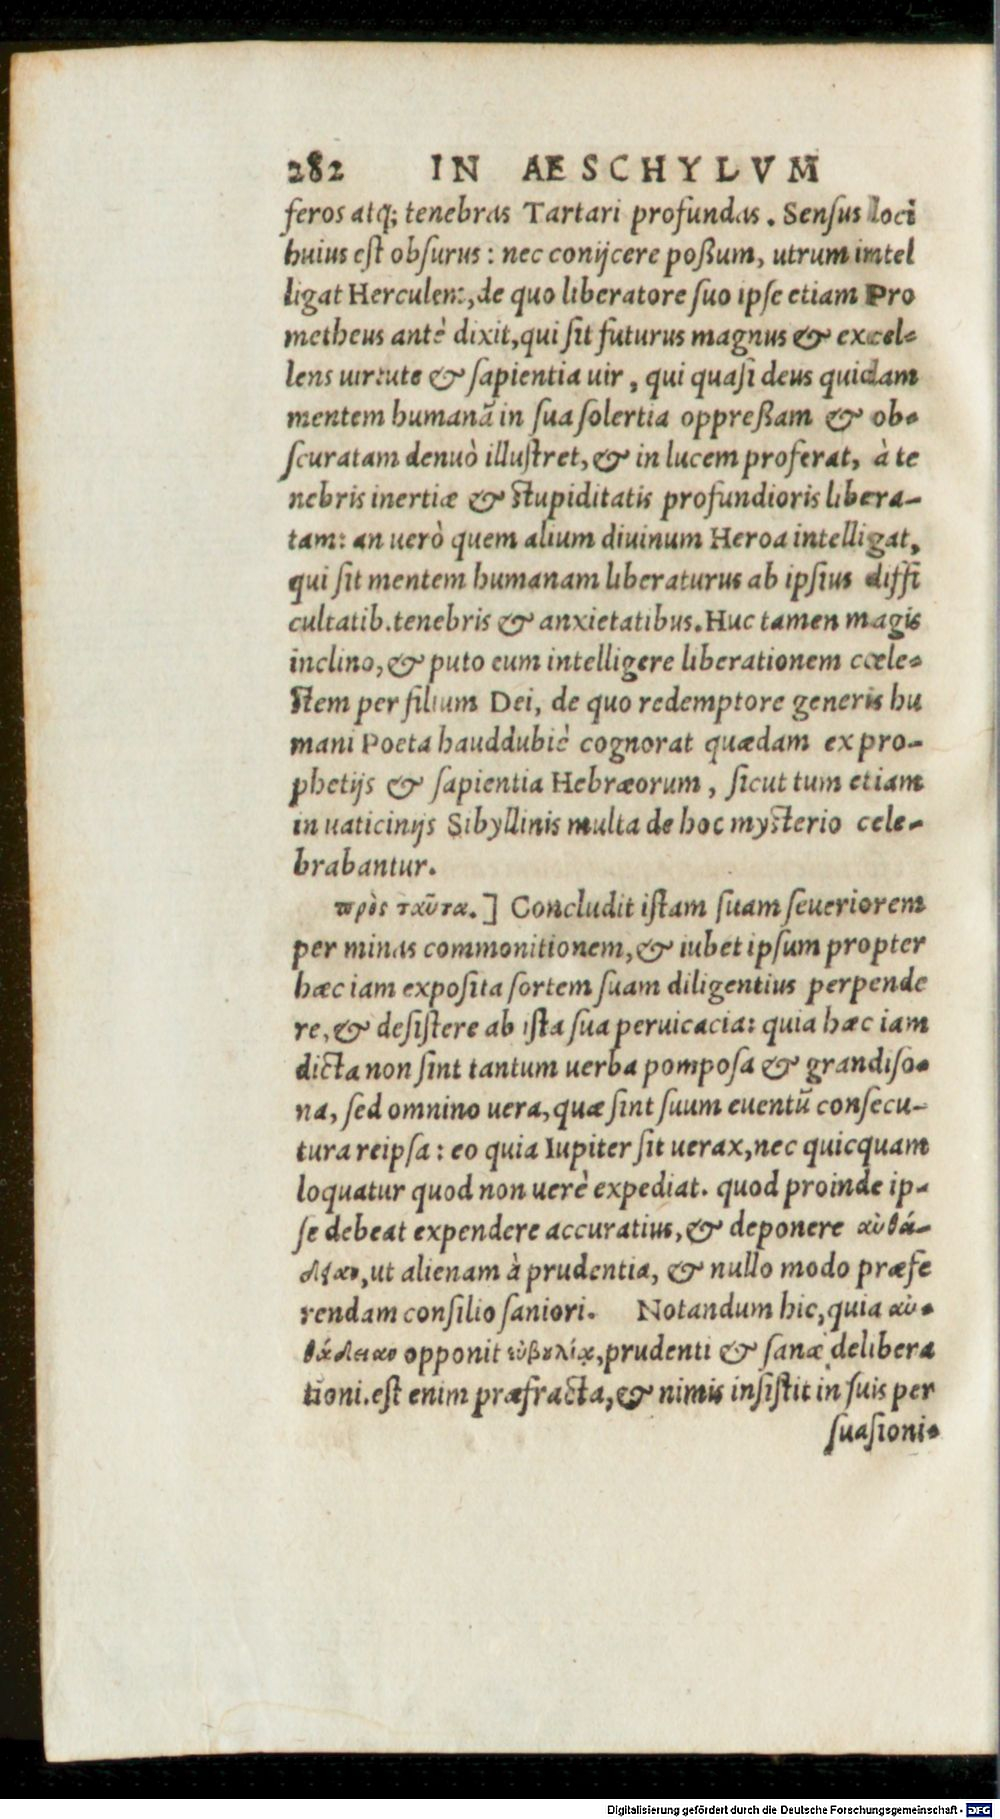 282 IN AESCHYLVM
feros atq; tenebras Tartari profundas. Sensus loci
huius est obsurus: nec conijcere poßum, utrum imtel
ligat Herculem, de quo liberatore suo ipse etiam Pro
metheus antè dixit, qui sit futurus magnus & excel-
lens uirtute & sapientia uir, qui quasi deus quidam
mentem humanā in sua solertia oppreßam & ob-
scuratam denuò illustret, & in lucem proferat, à te
nebris inertiæ & stupiditatis profundioris libera-
tam: an uerò quem alium diuinum Heroa intelligat,
qui sit mentem humanam liberaturus ab ipsius diffi
cultatib. tenebris & anxietatibus. Huc tamen magis
inclino, & puto eum intelligere liberationem cœle-
stem per filium Dei, de quo redemptore generis hu
mani Poeta hauddubiè cognorat quædam ex pro-
phetijs & sapientia Hebræorum, sicut tum etiam
in uaticinijs Sibyllinis multa de hoc mysterio cele-
brabantur.
πρὸς ταῦτα.] Concludit istam suam seueriorem
per minas commonitionem, & iubet ipsum propter
hæc iam exposita sortem suam diligentius perpende
re, & desistere ab ista sua peruicacia: quia hæc iam
dicta non sint tantum uerba pomposa & grandiso-
na, sed omnino uera, quæ sint suum euentū consecu-
tura reipsa: eo quia Iupiter sit uerax, nec quicquam
loquatur quod non uerè expediat. quod proinde ip-
se debeat expendere accuratius, & deponere αὐθά-
δίαν, ut alienam à prudentia, & nullo modo præfe
rendam consilio saniori. Notandum hic, quia αὐ-
θάδειαν opponit εὐβουλίᾳ, prudenti & sanæ delibera
tioni. est enim præfracta, & nimis insistit in suis per
suasioni-
Digitalisierung gefördert durch die Deutsche Forschungsgemeinschaft - DFG